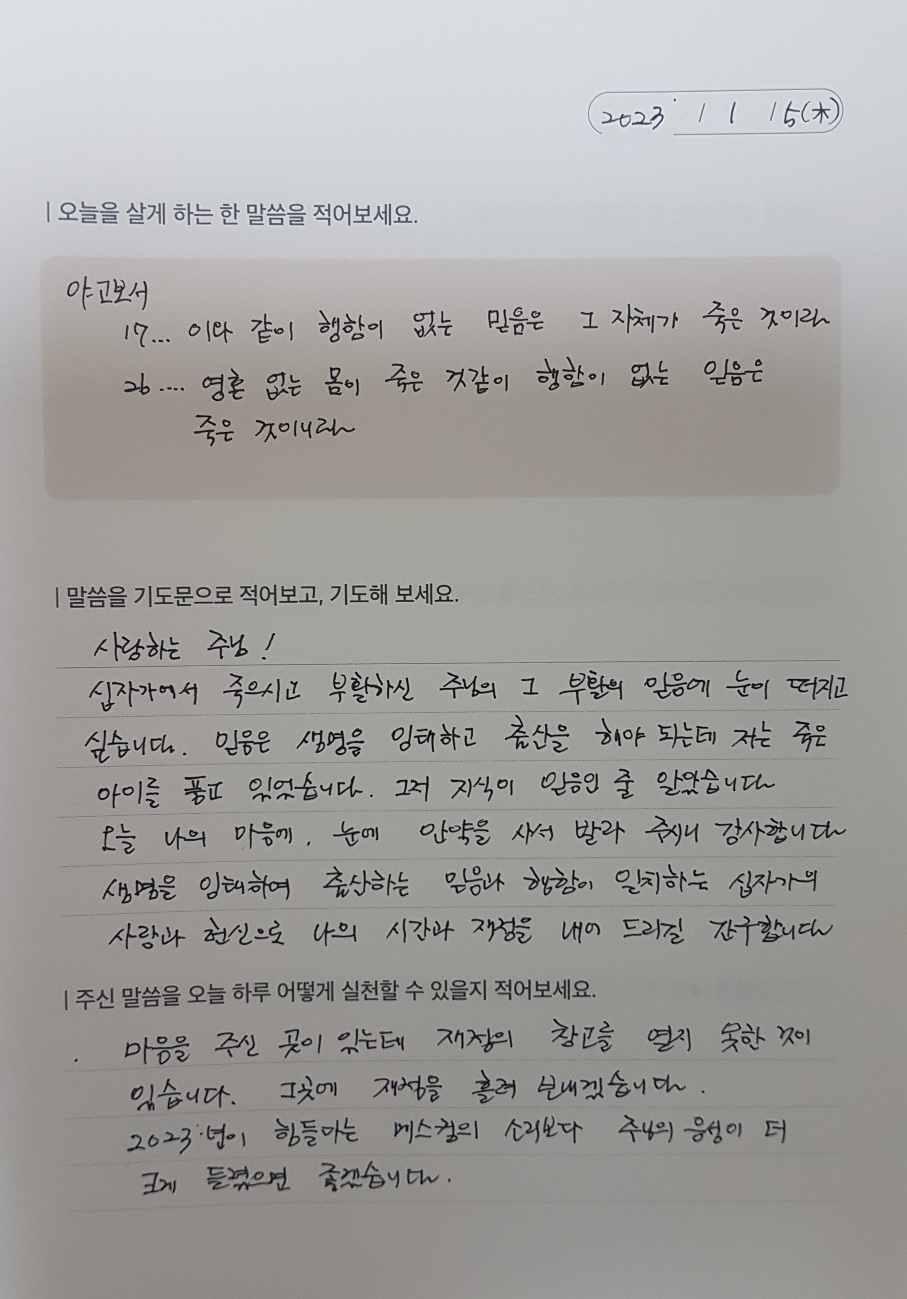 2023. 1 1 15(木)
| 오늘을 살게 하는 한 말씀을 적어보세요.
야고보서
17... 이와 같이 행함이 없는 믿음은 그 자체가 죽은 것이라
26.... 영혼 없는 몸이 죽은 것같이 행함이 없는 믿음은
죽은 것이니라
| 말씀을 기도문으로 적어보고, 기도해 보세요.
사랑하는 주님!
십자가에서 죽으시고 부활하신 주님의 그 부활의 믿음에 눈이 떠지고
싶습니다. 믿음은 생명을 잉태하고 출산을 해야 되는데 저는 죽은
아이를 품고 있었습니다. 그저 지식이 믿음인 줄 알았습니다
오늘 나의 마음에, 눈에 안약을 사서 발라 주시니 감사합니다
생명을 잉태하여 출산하는 믿음과 행함이 일치하는 십자가의
사랑과 헌신으로 나의 시간과 재정을 내어 드리길 간구합니다
| 주신 말씀을 오늘 하루 어떻게 실천할 수 있을지 적어보세요.
. 마음을 주신 곳이 있는데 재정의 창고를 열지 못한 것이
있습니다. 그곳에 재정을 흘려 보내겠습니다.
2023년이 힘들다는 메스컴의 소리보다 주님의 음성이 더
크게 들렸으면 좋겠습니다.